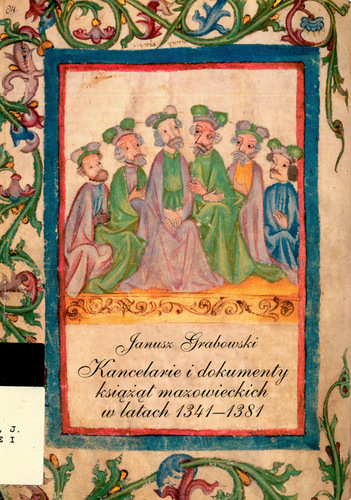 Janusz Grabowski
Kancelarie i dokumenty
książąt mazowieckich
w latach 1341–1381
J.
E I